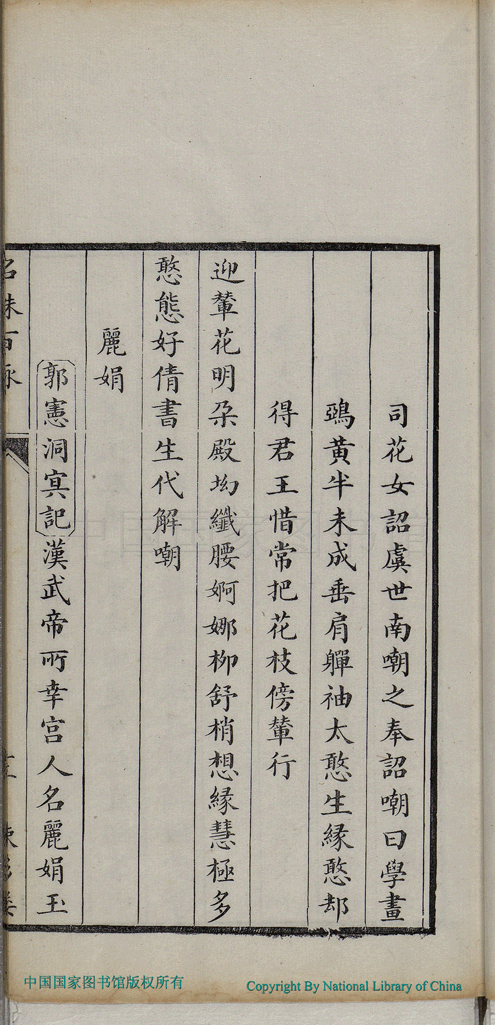 司花女詔虞世南嘲之奉詔嘲曰學畫
鵶黃半未成垂肩嚲袖太憨生緣憨却
得君王惜常把花枝傍輦行
迎輦花明朵殿坳纖腰婀娜柳舒梢想緣慧極多
憨態好倩書生代解嘲
麗娟
郭憲洞冥記漢武帝所幸宮人名麗娟玉
中国国家图书馆版权所有
Copyright By National Library of China